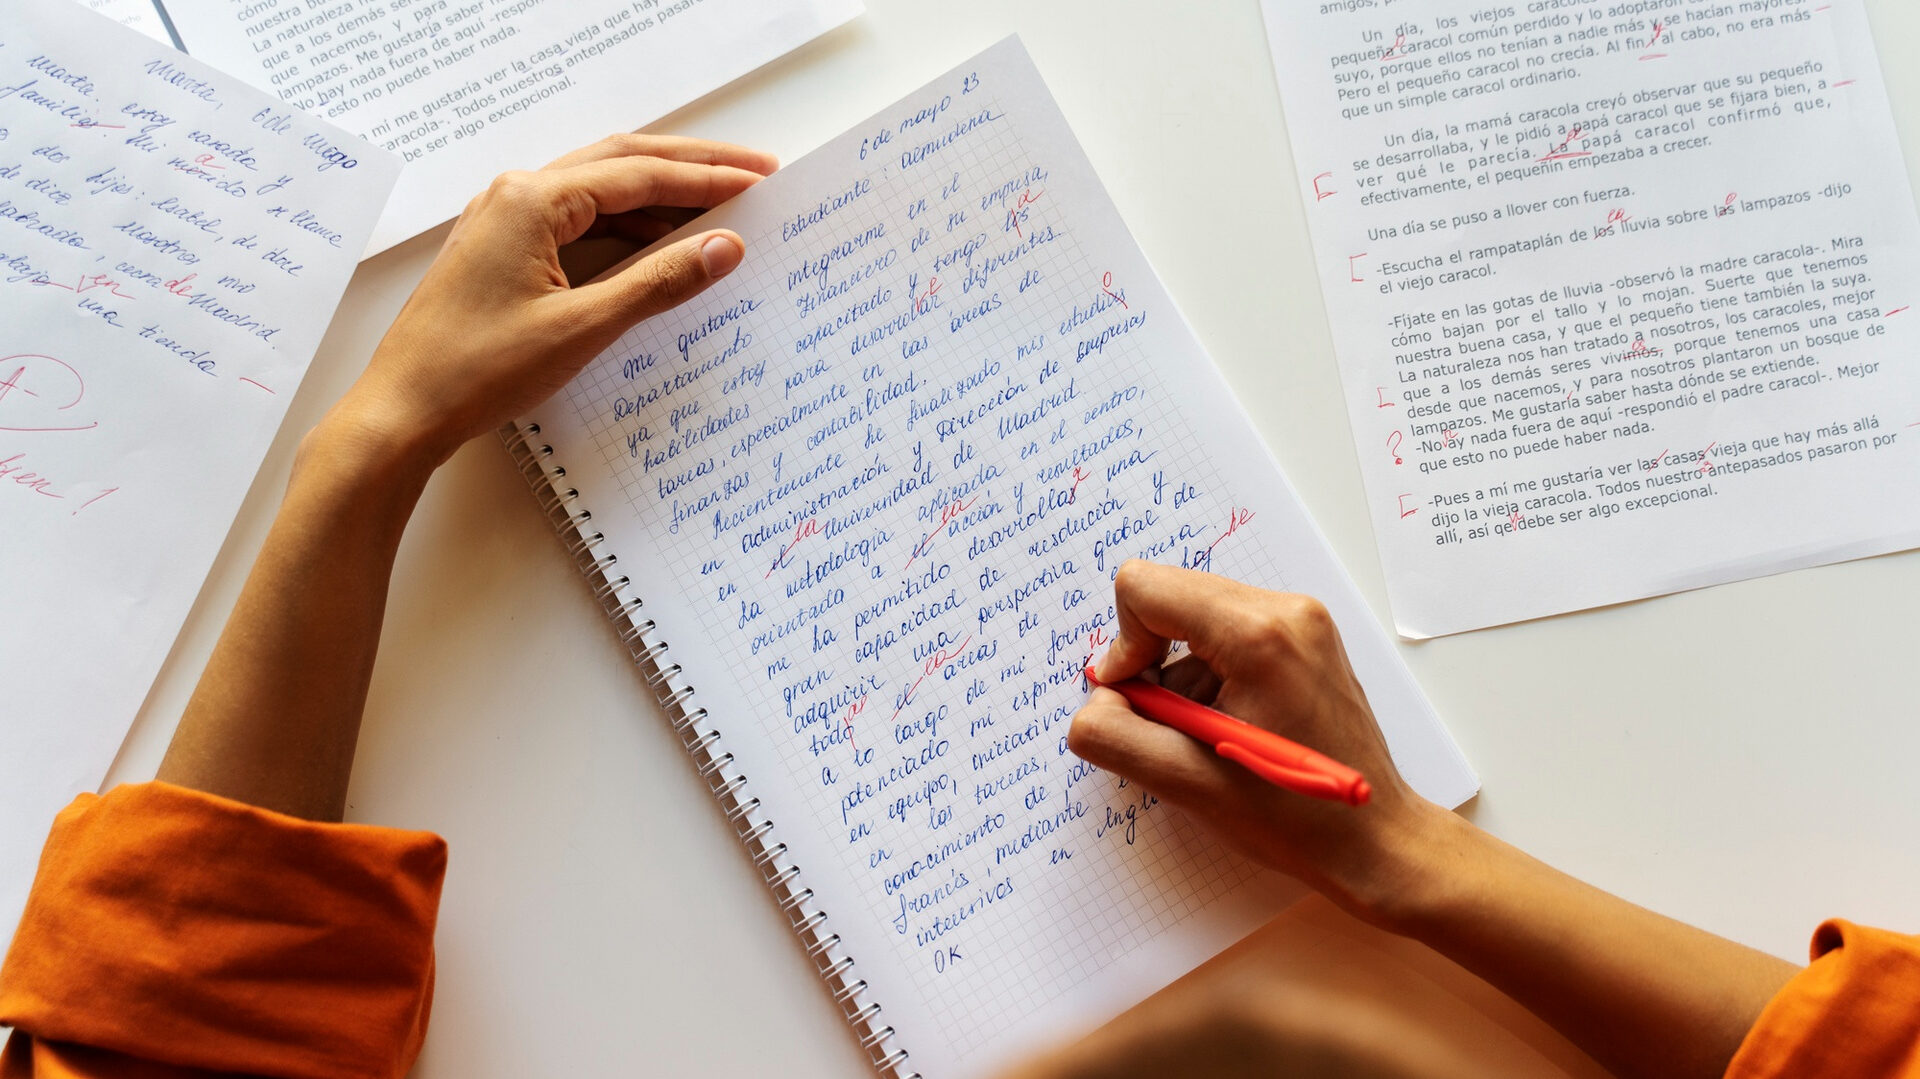 Marta, 6 de mayo
Marta. estoy casada y
familia. Mi marido se llama
a
dos hijos: Isabel, de doce
nosotros vivo
cerca de Madrid.
en
una tienda
A-
cómo
La naturaleza
que a los demás seres
que nacemos, y para
lampazos. Me gustaría saber
No hay nada fuera de aquí -respon
esto no puede haber nada.
a mí me gustaría ver la casa vieja que hay
aracola-. Todos nuestros antepasados pasaro
be ser algo excepcional.
6 de mayo 23
Estudiante: Almudena
Me gustaría integrarme en el
Departamento Financiero de su empresa,
ya que estoy capacitado y tengo los
a
habilidades para desarrollar diferentes
e
tareas, especialmente en las áreas de
finanzas y contabilidad.
Recientemente he finalizado mis estudios
o
en administración y Dirección de Empresas
en el Universidad de Madrid.
la
La metodología aplicada en el centro,
orientada a el acción y resultados,
la
me ha permitido desarrollar una
r
gran capacidad de resolución y
adquirir una perspectiva global de
todo el areas de la empresa.
as
la
a lo largo de mi formac
he
potenciado mi espíritu
u
en equipo, iniciativa
en las tareas, a
conocimiento de idi
francés, mediante
intensivos en Ingl
OK
amigos, p
Un día, los viejos caracoles
pequeña caracol común perdido y lo adoptaron co
suyo, porque ellos no tenían a nadie más y se hacían mayores.
Pero el pequeño caracol no crecía. Al fin y al cabo, no era más
que un simple caracol ordinario.
Un día, la mamá caracola creyó observar que su pequeño
se desarrollaba, y le pidió a papá caracol que se fijara bien, a
ver qué le parecía. La papá caracol confirmó que,
efectivamente, el pequeñín empezaba a crecer.
Una día se puso a llover con fuerza.
-Escucha el rampataplán de los lluvia sobre las lampazos -dijo
el viejo caracol.
-Fíjate en las gotas de lluvia -observó la madre caracola-. Mira
cómo bajan por el tallo y lo mojan. Suerte que tenemos
nuestra buena casa, y que el pequeño tiene también la suya.
La naturaleza nos han tratado a nosotros, los caracoles, mejor
que a los demás seres vivimos, porque tenemos una casa
desde que nacemos, y para nosotros plantaron un bosque de
lampazos. Me gustaría saber hasta dónde se extiende.
?
-No ay nada fuera de aquí -respondió el padre caracol-. Mejor
que esto no puede haber nada.
-Pues a mí me gustaría ver las casas vieja que hay más allá
dijo la vieja caracola. Todos nuestro antepasados pasaron por
allí, así qe debe ser algo excepcional.